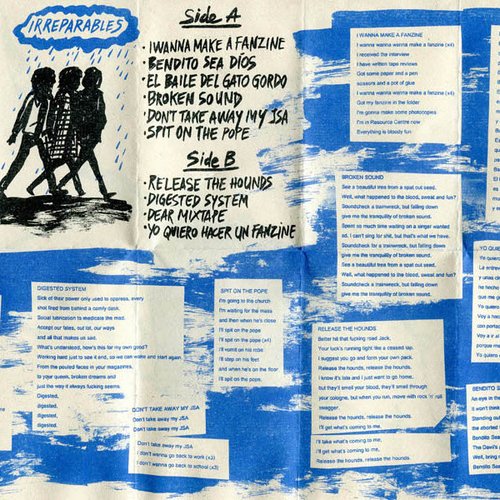 IRREPARABLES
Side A
· I WANNA MAKE A FANZINE
· BENDITO SEA DÍOS
· EL BAILE DEL GATO GORDO
· BROKEN SOUND
· DON'T TAKE AWAY MY JSA
· SPIT ON THE POPE
Side B
· RELEASE THE HOUNDS
· DIGESTED SYSTEM
· DEAR MIXTAPE
· YO QUIERO HACER UN FANZINE
I WANNA MAKE A FANZINE
I wanna wanna wanna make a fanzine (x4)
I received the interview
I have written tape reviews
Got some paper and a pen
scissors and a pot of glue
I wanna wanna wanna make a fanzine (x4)
Got my fanzine in the folder
I'm gonna make some photocopies
I'm in Resource Centre now
Everything is bloody fun
BROKEN SOUND
See a beautiful tree from a spat out seed.
Well, what happened to the blood, sweat and fun?
Soundcheck a trainwreck, but falling down
give me the tranquility of broken sound.
Spent so much time waiting on a singer wanted
ad. I can't sing for shit, but that's what we have.
Soundcheck for a trainwreck, but falling down
give me the tranquility of broken sound.
See a beautiful tree from a spat out seed.
Well, what happened to the blood, sweat and fun?
Soundcheck a trainwreck, but falling down
give me the tranquility of broken sound.
DIGESTED SYSTEM
Sick of their power only used to oppress, every
shot fired from behind a comfy desk.
Social lubrication to medicate the mind.
Accept our fates, our lot, our ways
and all that makes us sad.
What's understood, how's this for my own good?
Working hard just to see it end, so we can wake and start again.
From the pouted faces in your magazines,
to your queen, broken dreams and
just the way it always fucking seems.
Digested,
digested,
digested,
digested.
SPIT ON THE POPE
I'm going to the church
I'm waiting for the mass
and then when he's close
I'll spit on the pope
I'll spit on the pope (x4)
I'll vomit on his robe
I'll step on his feet
and when he's on the floor
I'll spit on the pope.
DON'T TAKE AWAY MY JSA
Don't take away my JSA
Don't take away my JSA
I don't wanna go back to work (x3)
I don't wanna go back to school (x3)
RELEASE THE HOUNDS
Better hit that fucking road Jack.
Your luck's running tight like a ceased tap.
I suggest you go and form your own pack.
Release the hounds, release the hounds.
I know it's late and I just want to go home,
but they'll smell your blood, they'll smell through
your cologne, but when you run, move with rock 'n' roll
swagger.
Release the hounds, release the hounds.
I'll get what's coming to me.
I'll take what's coming to me,
I'll get what's coming to me.
Release the hounds, release the hounds.
YO QU
Yo quiero
BENDITO
An eye in
Bendito Sea
The Devil's
Well, bring
Bendito Sea